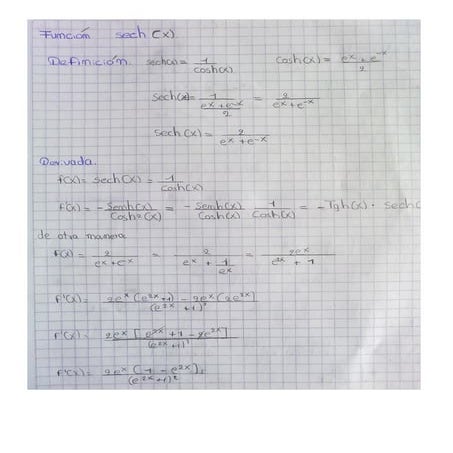 Función sech (x)
Definición. sech(x) = 1/cosh(x) cosh(x) = (e^x + e^-x)/2
sech(x) = 1/((e^x + e^-x)/2) = 2/(e^x + e^-x)
sech(x) = 2/(e^x + e^-x)
Derivada.
f(x) = sech(x) = 1/cosh(x)
f'(x) = - Senh(x)/Cosh²(x) = - Senh(x)/Cosh(x) 1/Cosh(x) = - Tgh(x) · sech(
de otra manera
f(x) = 2/(e^x + e^-x) = 2/(e^x + 1/e^x) = 2e^x/(e^2x + 1)
f'(x) = (2e^x (e^2x + 1) - 2e^x (2e^2x))/(e^2x + 1)²
f'(x) = 2e^x [e^2x + 1 - 2e^2x]/(e^2x + 1)²
f'(x) = 2e^x (1 - e^2x)/(e^2x + 1)²